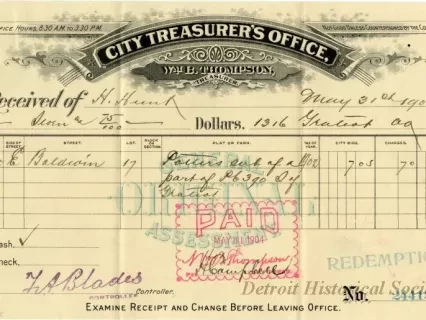 OFFICE HOURS, 8.30 A.M. TO 3.30 P.M.
CITY TREASURER'S OFFICE,
WM. B. THOMPSON,
TREASURER.
Received of H. Hunt May 31st 190
Seven & 75/100 Dollars. 1316 Gratiot
STREET. LOT. BLOCK OR SECTION. PLAT OR FARM. CITY BIDS. CHARGES.
E Baldwin 17 Potters sub of a 1902 7.05 70
part of P C 390 S of
Gratiot
OFFICIAL
ASSESSMENT
PAID
MAY 31 1904
Wm B Thompson
Campbell
Cash.
Check.
Controller.
CONTROLLER
REDEMPTION
No.
Detroit Historical Society
EXAMINE RECEIPT AND CHANGE BEFORE LEAVING OFFICE.